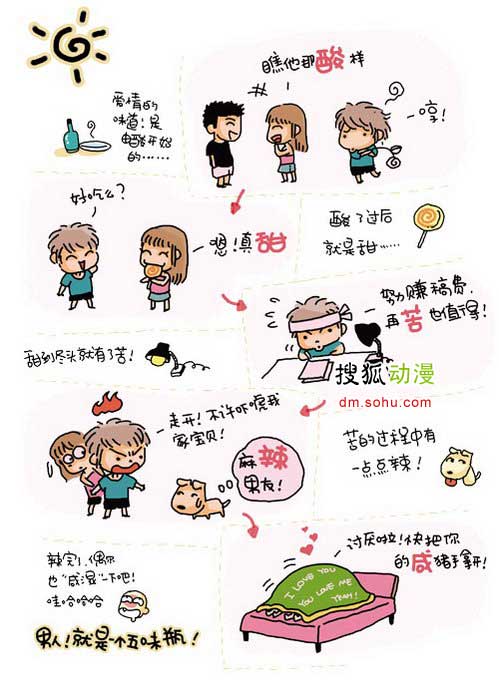 瞧他那酸样
爱情的
味道！是
由醋开始
的……
哼！
好吃么？
嗯！真甜
酸了过后
就是甜……
努力赚稿费，
再苦也值得！
搜狐动漫
dm.sohu.com
甜到尽头就有了苦！
走开！不许吓唬我
家宝贝！
麻辣
男友！
苦的过程中有
一点点辣！
讨厌啦！快把你
的咸猪手拿开！
I LOVE YOU
YOU LOVE ME
辣完了，偶尔
也“咸湿”一下吧！
哇哈哈哈
男人！就是个五味瓶！